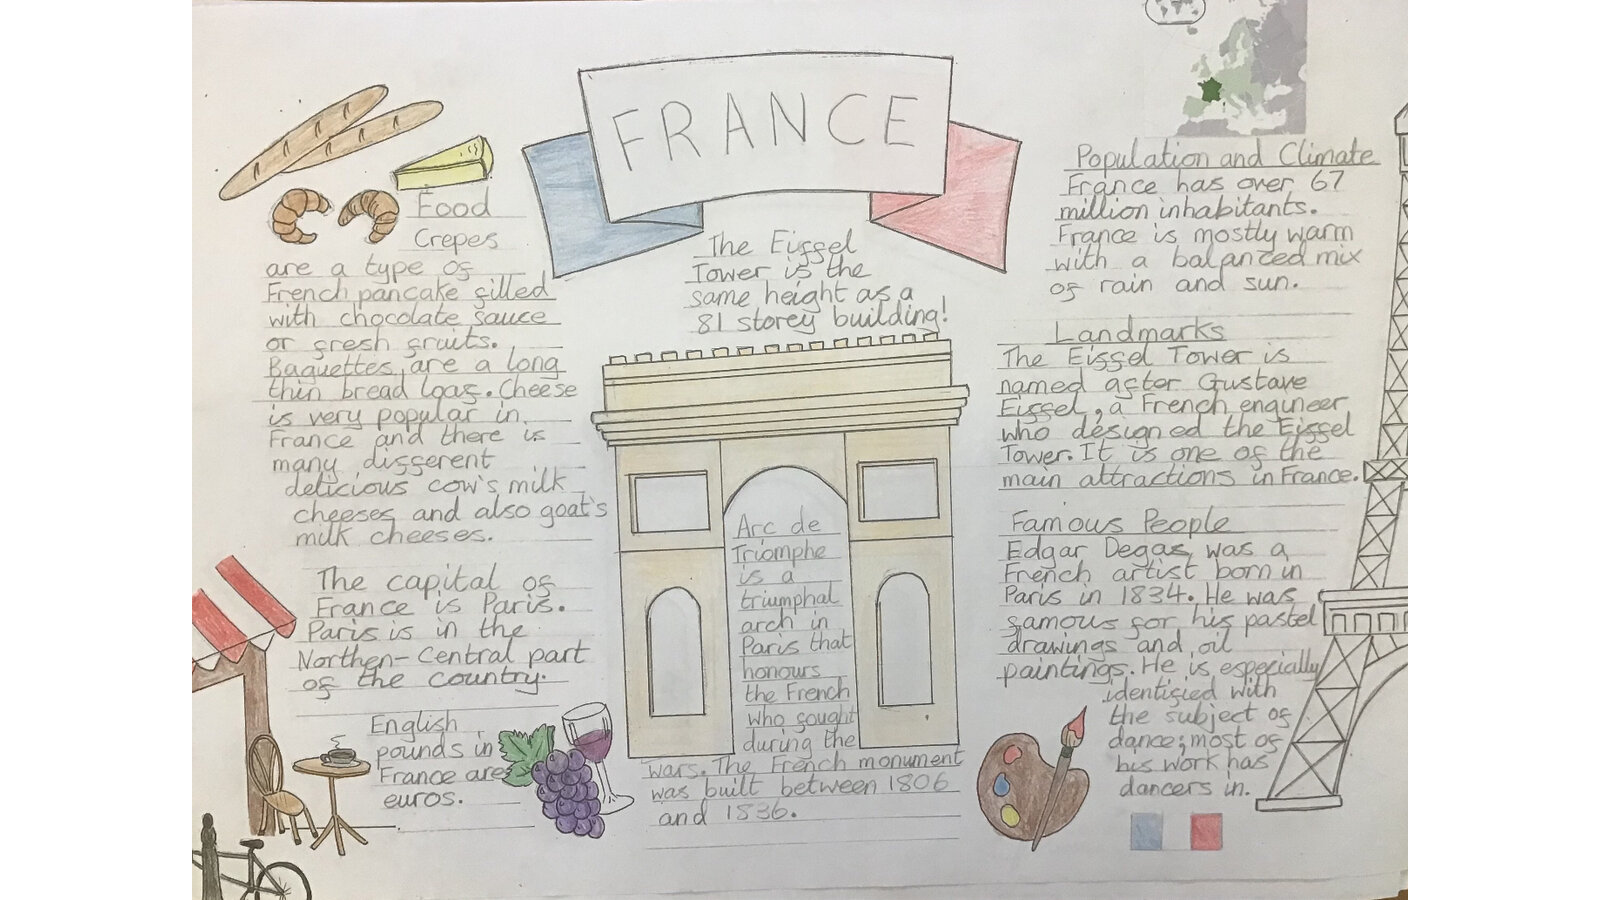 FRANCE
Food
Crepes
are a type of
French pancake filled
with chocolate sauce
or fresh fruits.
Baguettes are a long
thin bread loaf. Cheese
is very popular in
France and there is
many different
delicious cow's milk
cheeses and also goat's
milk cheeses.
The capital of
France is Paris.
Paris is in the
Northen-Central part
of the country.
English
pounds in
France are
euros.
The Eiffel
Tower is the
same height as a
81 storey building!
Arc de
Triomphe
is a
triumphal
arch in
Paris that
honours
the French
who fought
during the
wars. The French monument
was built between 1806
and 1836.
Population and Climate
France has over 67
million inhabitants.
France is mostly warm
with a balanced mix
of rain and sun.
Landmarks
The Eiffel Tower is
named after Gustave
Eiffel, a French engineer
who designed the Eiffel
Tower. It is one of the
main attractions in France.
Famous People
Edgar Degas was a
French artist born in
Paris in 1834. He was
famous for his pastel
drawings and oil
paintings. He is especially
identified with
the subject of
dance; most of
his work has
dancers in.